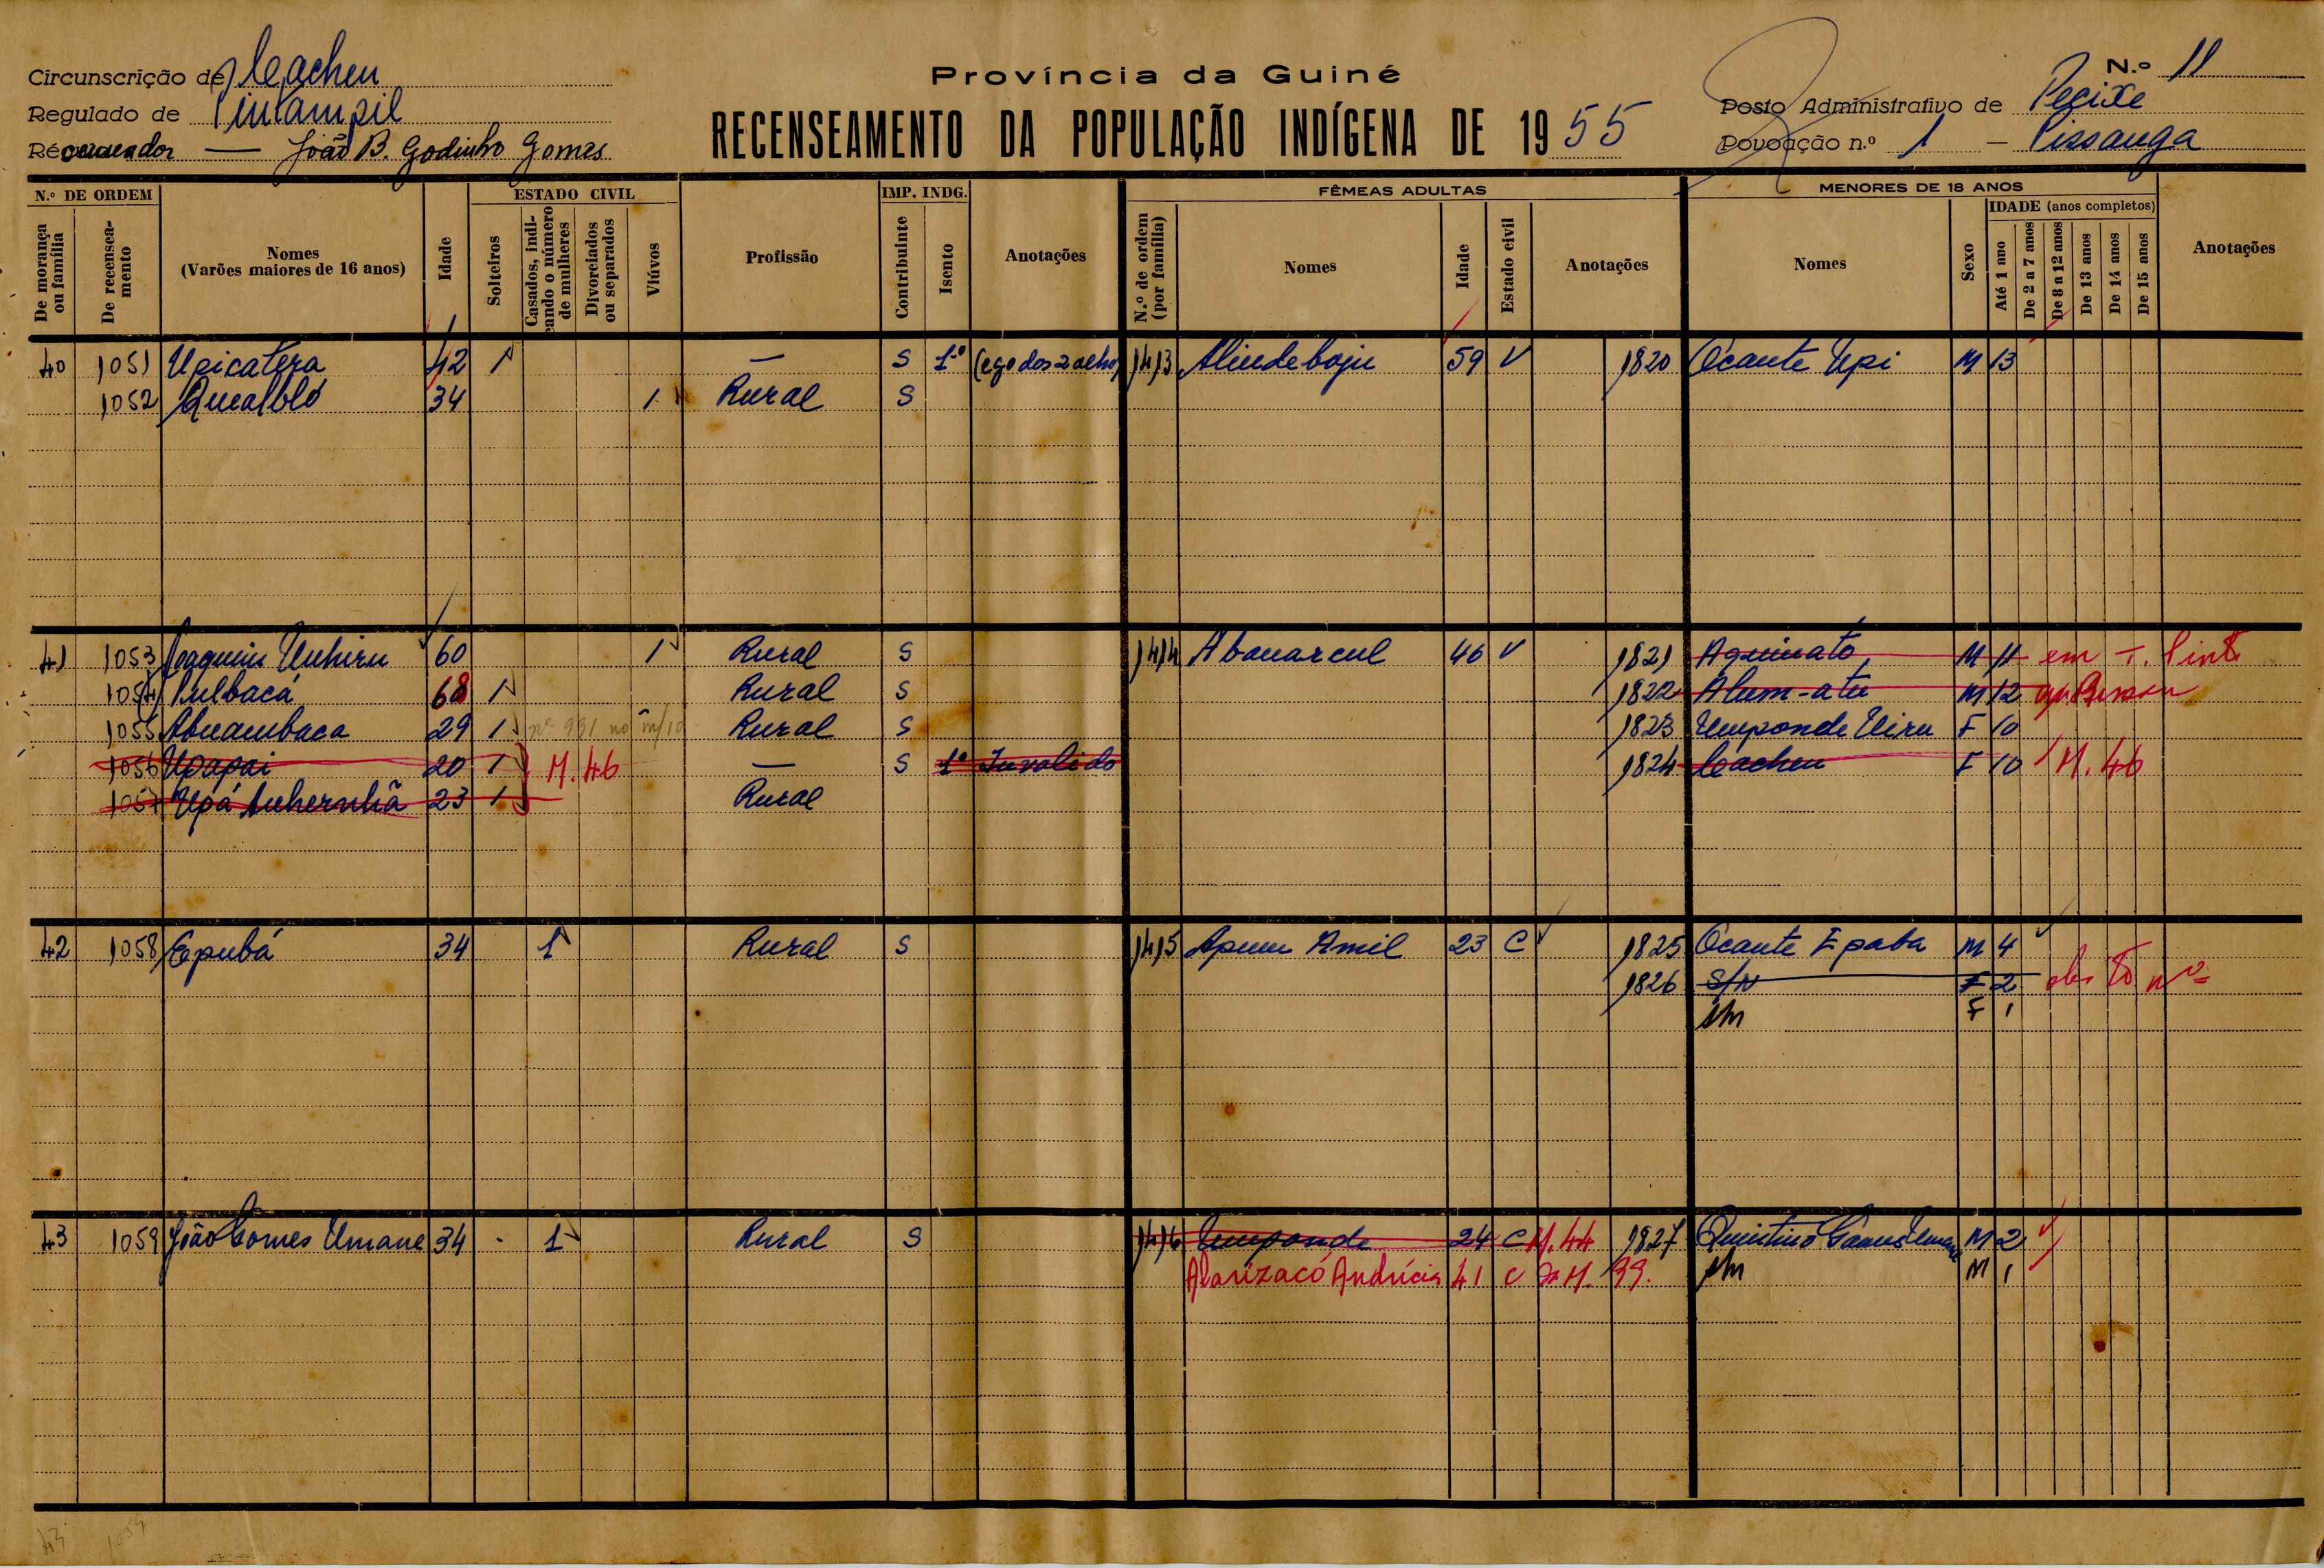 Província da Guiné
N.º 11
Circunscrição de Cacheu
Regulado de Tintampil
Recenseador — João B. Godinho Gomes
RECENSEAMENTO DA POPULAÇÃO INDÍGENA DE 1955
Posto Administrativo de Pecixe
Povoação n.º 1 – Pissanga
N.º DE ORDEM
De morança ou família
De recenseamento
Nomes (Varões maiores de 16 anos)
Idade
ESTADO CIVIL
Solteiros
Casados, indicando o número de mulheres
Divorciados ou separados
Viúvos
Profissão
IMP. INDG.
Contribuinte
Isento
Anotações
FÊMEAS ADULTAS
N.º de ordem (por família)
Nomes
Idade
Estado civil
Anotações
MENORES DE 18 ANOS
Nomes
Sexo
IDADE (anos completos)
Até 1 ano
De 2 a 7 anos
De 8 a 12 anos
De 13 anos
De 14 anos
De 15 anos
Anotações
40 1051 Upicatera 42 1 — S 1º 1413 Alindeboju 59 V 1820 Ocante Upi M 13
1052 Quealbló 34 1 Rural S
41 1053 Joaquim Unhiru 60 1 Rural S 1414 Abanarcul 46 V 1821 Aquinato M 11 em T. Pinto
1054 Pulbacá 68 1 Rural S 1822 Alum-atu M 12
1055 Abuambaca 29 1 nº 991 no Rural S 1823 Umponde Uiru F 10
1056 Upapai 20 1 M. 46 — S 1º Invalido 1824 Cacheu F 10 M. 46
1057 Upá 23 1 Rural
42 1058 Epubá 34 1 Rural S 1415 Apum Amil 23 C 1825 Ocante Epaba M 4
1826 S/N F 2
S/n F 1
43 1059 João Gomes Umane 34 1 Rural S 1416 Umponde 24 C M. 44 1827 Quintino Gomes Umane M 2
Alarizacó Andrícia 41 C da M. 99. S/n M 1
43 1059